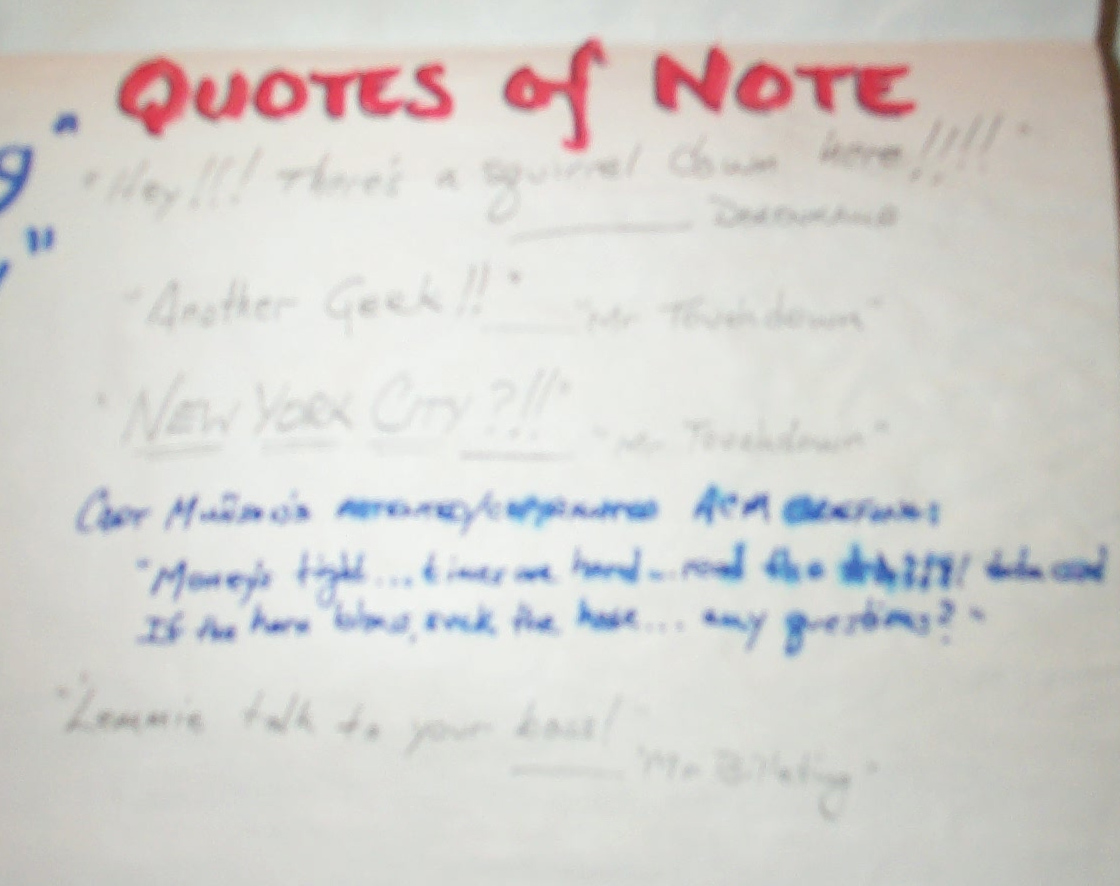 QUOTES of NOTE
"Hey!!! There's a squirrel down here!!!!"
"Another Geek!!" "Mr Touchdown"
"NEW YORK CITY?!!" "Mr Touchdown"
ACM
"Money's tight...times are hard...read the card
If the horn blows, suck the hose... any questions?"
"Lemmie talk to your boss!"
"Mr